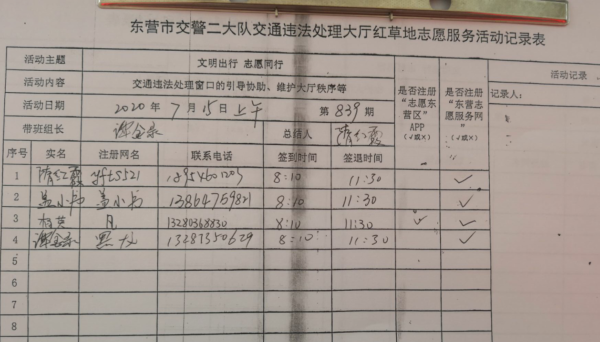 东营市交警二大队交通违法处理大厅红草地志愿服务活动记录表
活动主题 文明出行 志愿同行
活动内容 交通违法处理窗口的引导协助、维护大厅秩序等
活动日期 2020年7月15日上午 第839期
带班组长 总结人 隋红霞
是否注册“志愿东营区”APP（√或×）
是否注册“东营志愿服务网”（√或×）
活动记录
记录人：
序号 实名 注册网名 联系电话 签到时间 签退时间
1 隋红霞 yfts521 18954601209 8:10 11:30 ✓
2 盖小书 盖小书 13864759821 8:10 11:30 ✓
3 凡 13280368830 8:10 11:30 ✓ ✓
4 黑龙 13287350629 8:10 11:30 ✓
5
6
7
8